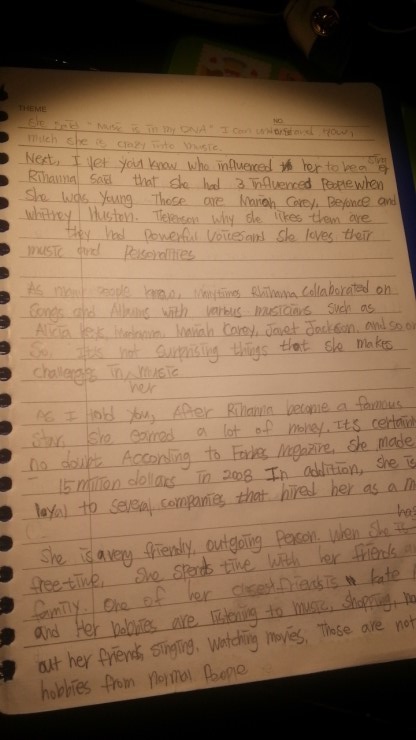 THEME
NO.
She said "Music is in my DNA" I can understand how
much she is crazy into music.
Next, I let you know who influenced her to be a star
Rihanna said that she had 3 influenced people when
she was young. Those are Mariah Carey, Beyonce and
whitney Huston. The reason why she likes them are
they had powerful voices and she loves their
music and Personalities
As many people know, Rihanna collaborated on
songs and Albums with various musicians such as
Alicia keys, Madonna, Mariah Carey, Janet Jackson, and so on
So, It's not surprising things that she makes
challenges in her music
As I told you, After Rihanna become a famous
star, she earned a lot of money. It's certain
no doubt According to Forbes Magazine, she made
15 million dollars in 2008 In addition, she is
loyal to several companies that hired her as a m
She is a very friendly, outgoing person. When she has
free-time, she spends time with her friends a
family. One of her closest friends is kate
and Her hobbies are listening to music, shopping,
out her friends, singing, watching movies, Those are not
hobbies from normal People